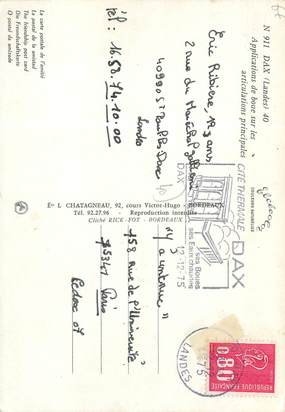 N 911 DAX (Landes) 40
Applications de boue sur les
articulations principales
La carte postale de l'amitié
La postal de la amistad
The friendship post card
Die Freundschaftskarte
O postal da amizade
Eric Ribière, 12 ans
2 rue du Maréchal
40990 St Paul les Dax
Landes
Tel: 16.58.74.10.00
CITÉ THERMALE
DAX
ses Boues
ses Eaux chaudes
12-12-75
DAX
LANDES
Ets L. CHATAGNEAU, 92, cours Victor-Hugo - BORDEAUX
Tél. 92.27.96 - Reproduction interdite
Cliché RICK-FOT - BORDEAUX
158 Rue de l'Université
75341 Paris
Cedex 07
0,80